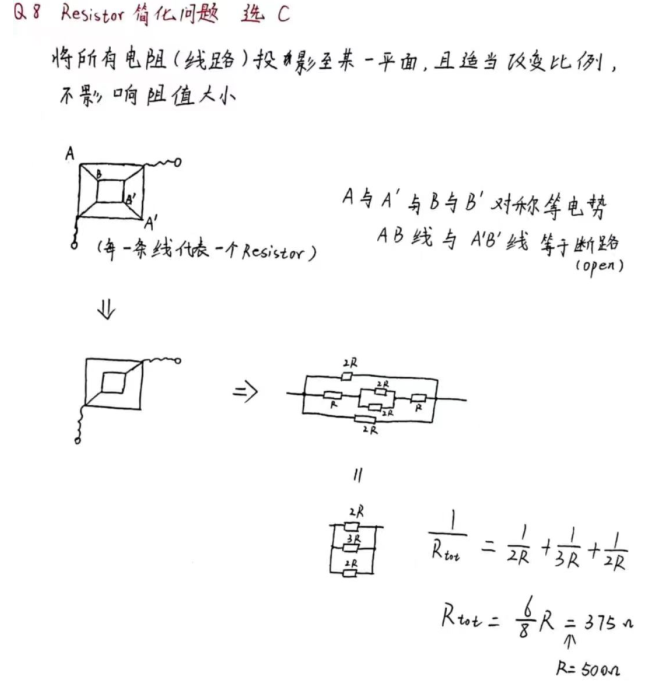 Q8 Resistor 简化问题 选 C
将所有电阻(线路)投影至某一平面,且适当改变比例,
不影响阻值大小
A
B
B'
A'
(每一条线代表一个Resistor)
A与A'与B与B'对称等电势
AB线与A'B'线等于断路
(open)
⇓
⇒
2R
2R
R
R
2R
2R
=
2R
3R
2R
1/R_tot = 1/2R + 1/3R + 1/2R
R_tot = 6/8 R = 375 Ω
↑
R=500Ω